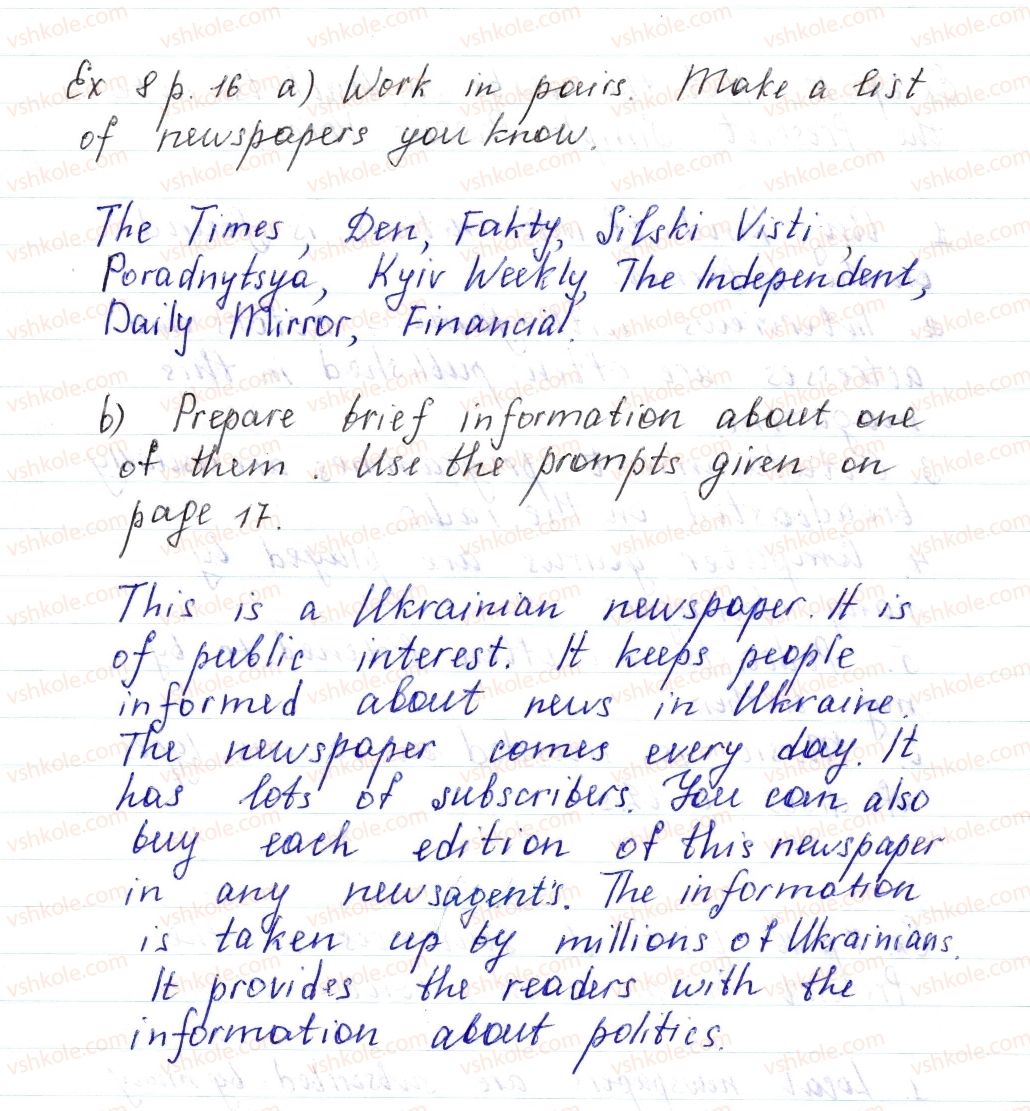 Ex 8 p. 16 a) Work in pairs. Make a list
of newspapers you know.
The Times, Den, Fakty, Silski Visti,
Poradnytsya, Kyiv Weekly, The Independent,
Daily Mirror, Financial.
b) Prepare brief information about one
of them. Use the prompts given on
page 17.
This is a Ukrainian newspaper. It is
of public interest. It keeps people
informed about news in Ukraine.
The newspaper comes every day. It
has lots of subscribers. You can also
buy each edition of this newspaper
in any newsagent's. The information
is taken up by millions of Ukrainians.
It provides the readers with the
information about politics.